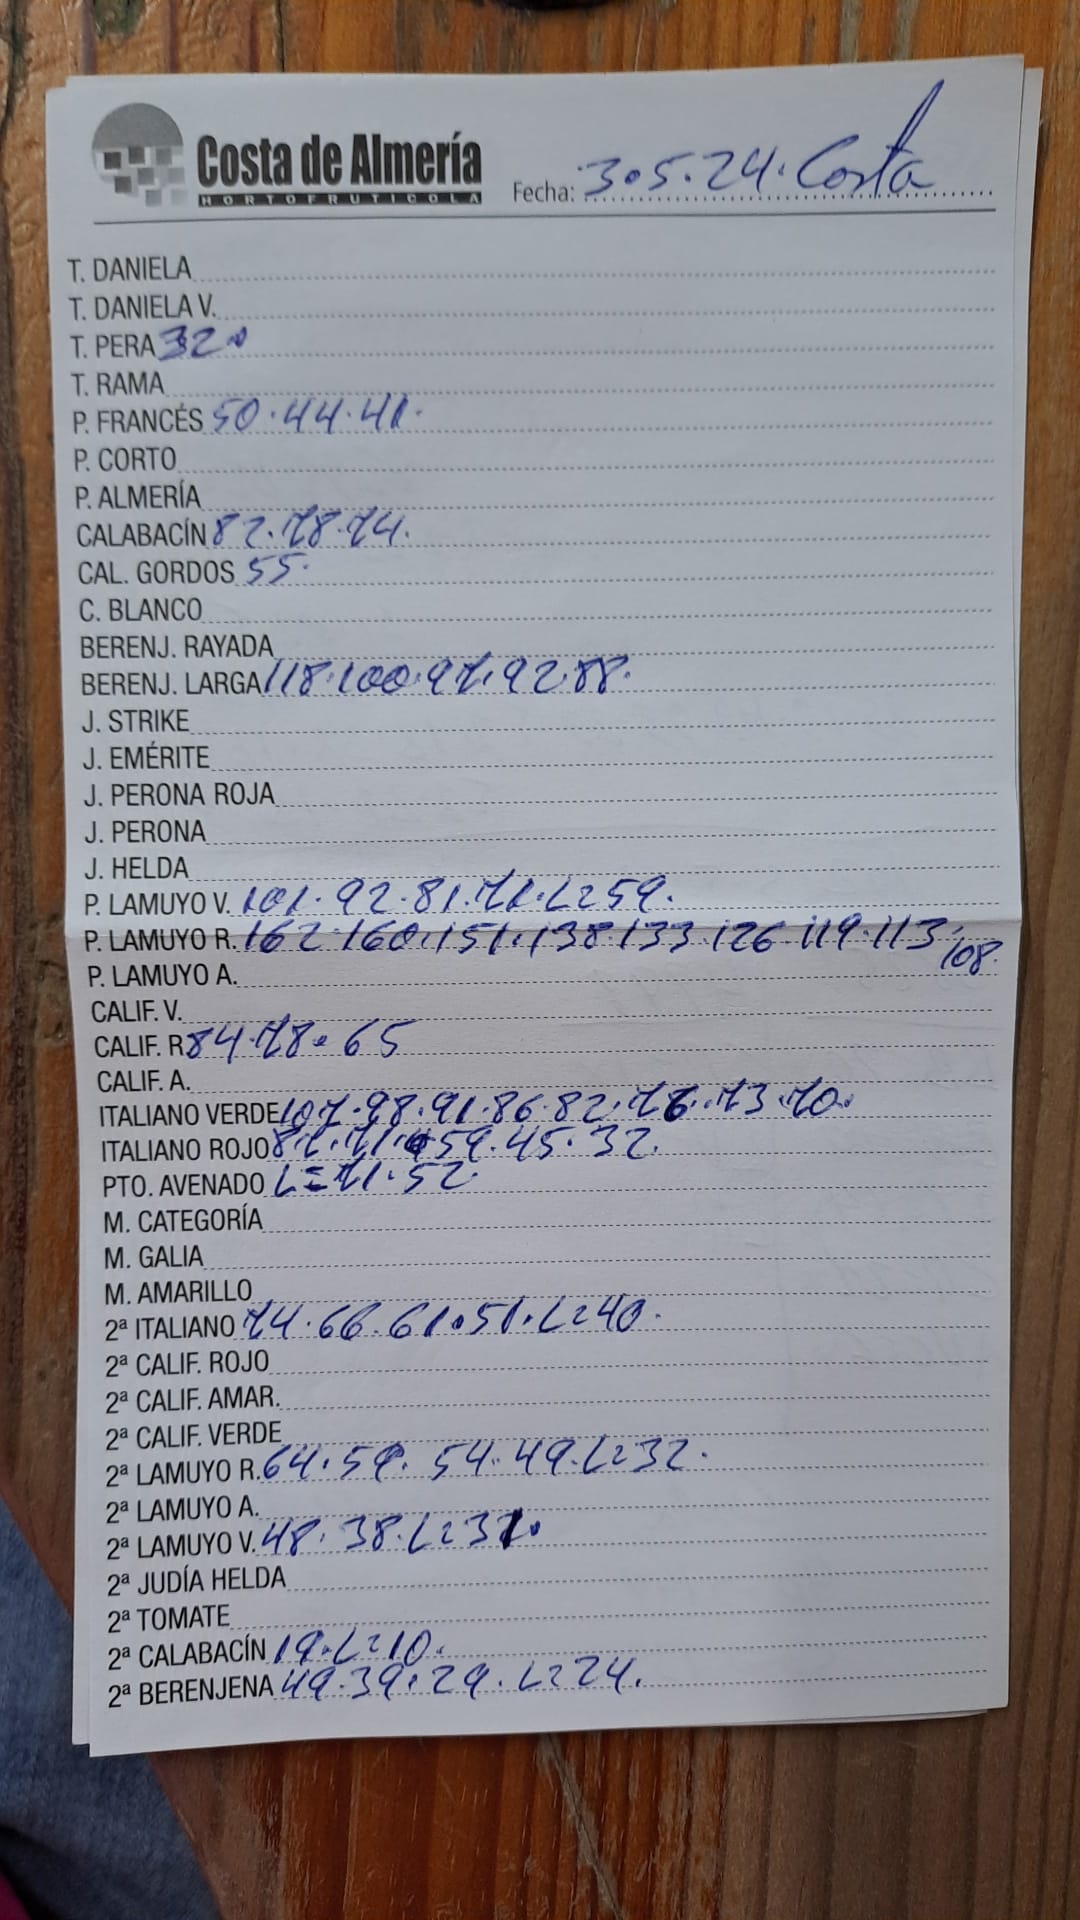 Costa de Almería
HORTOFRUTICOLA
Fecha: 3.5.24. Costa
T. DANIELA
T. DANIELA V.
T. PERA 32.
T. RAMA
P. FRANCÉS 50.44.41.
P. CORTO
P. ALMERÍA
CALABACÍN 82.78.74.
CAL. GORDOS 55.
C. BLANCO
BERENJ. RAYADA
BERENJ. LARGA 118.100.97.92.88.
J. STRIKE
J. EMÉRITE
J. PERONA ROJA
J. PERONA
J. HELDA
P. LAMUYO V. 101.92.81.71.L=59.
P. LAMUYO R. 162.160.151.138.133.126.119.113.108.
P. LAMUYO A.
CALIF. V.
CALIF. R 84.78.65
CALIF. A.
ITALIANO VERDE 107.98.91.86.82.76.73.70.
ITALIANO ROJO 71. 59.45.32.
PTO. AVENADO L=71.52.
M. CATEGORÍA
M. GALIA
M. AMARILLO
2ª ITALIANO 74.66.61.51.L=40.
2ª CALIF. ROJO
2ª CALIF. AMAR.
2ª CALIF. VERDE
2ª LAMUYO R. 64.59.54.49.L=32.
2ª LAMUYO A.
2ª LAMUYO V. 48.38.L=31.
2ª JUDÍA HELDA
2ª TOMATE
2ª CALABACÍN 19.L=10.
2ª BERENJENA 49.39.29.L=24.